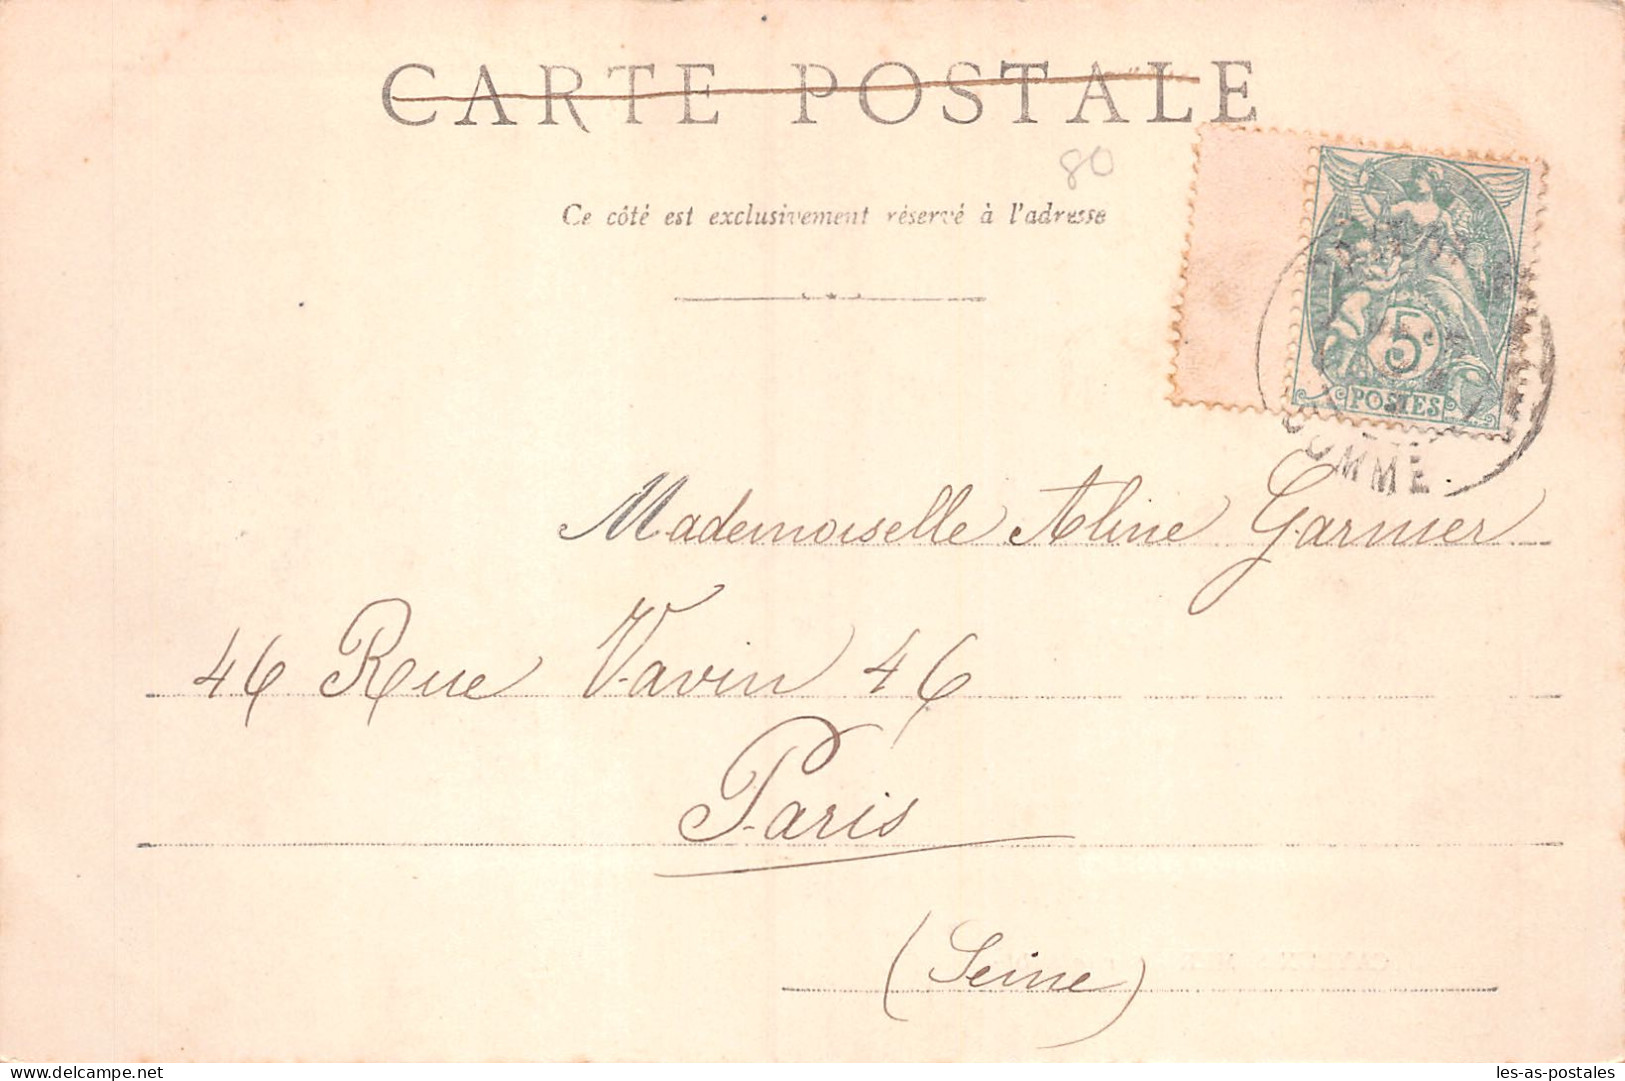 CARTE POSTALE
80
Ce côté est exclusivement réservé à l'adresse
5c
POSTES
SOMME
Mademoiselle Aline Garnier
46 Rue Vavin 46
Paris
(Seine)
delcampe.net
les-as-postales